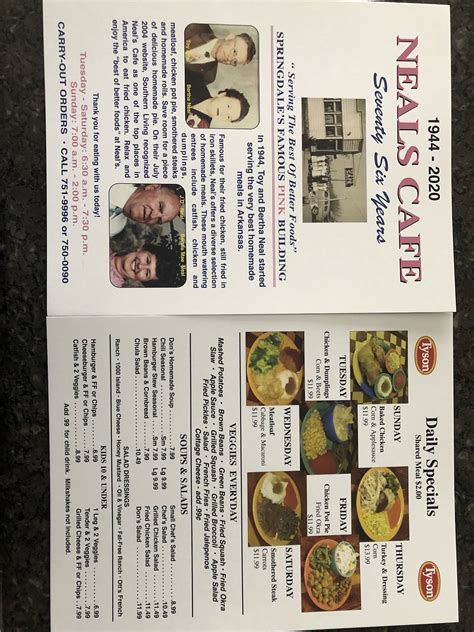 1944 2020
NEALS CAFE
Seventy Six Years
"Serving The Best Of Better Foods"
SPRINGDALE'S FAMOUS PINK BUILDING
In 1944, Toy and Bertha Neal started
serving the very best homemade
meals in Arkansas.
Famous for their fried chicken, still fried in
iron skillets, Neal's offers a diverse selection
of homemade meals. These mouth watering
entrees include catfish, chicken and
dumplings,
meatloaf, chicken pot pie, smothered steaks
and homemade rolls. Save room for a piece
of delicious homemade pie. On their July
2004 website, Southern Living recognized
Neal's Cafe as one of the top places in
America to eat fried chicken. Relax and
enjoy the "best of better foods" at Neal's.
Thank you for eating with us today!
Tuesday - Saturday: 6:30 a.m. - 7:30 p.m.
Sunday: 7:00 a.m. - 2:00 p.m.
CARRY-OUT ORDERS • CALL 751-9996 or 750-0090
Tyson
Daily Specials
Shared Meal $2.00
Tyson
SUNDAY
Baked Chicken
Corn & Applesauce
$11.99
THURSDAY
Turkey & Dressing
Corn
$11.99
TUESDAY
Chicken & Dumplings
Corn & Beets
$11.99
FRIDAY
Chicken Pot Pie
Fried Okra
$11.99
WEDNESDAY
Meatloaf
Cabbage & Macaroni
$11.99
SATURDAY
Smothered Steak
Carrots
$11.99
VEGGIES EVERYDAY
Mashed Potatoes • Brown Beans • Green Beans • Fried Squash • Fried Okra
Slaw • Apple Sauce • Grilled Squash • Grilled Broccoli • Apple Salad
Fried Pickles • Salad • French Fries • Fried Jalapenos
Cottage Cheese • Add .99¢
SOUPS & SALADS
Don's Homemade Soup
Chili Seasonal
Hamburger Stew Seasonal
Brown Beans & Cornbread
Chula Salad
Small Chef's Salad
Chef's Salad
Grilled Chicken Salad
Fried Chicken Salad
Don's Salad
SALAD DRESSINGS
Ranch • 1000 Island • Blue Cheese • Honey Mustard • Oil & Vinegar • Fat-Free Ranch • Ott's French
KIDS 10 & UNDER
Hamburger & FF or Chips
Cheeseburger & FF or Chips
Catfish & 2 Veggies
1 Leg & 2 Veggies
Tender & 2 Veggies
Grilled Cheese & FF or Chips
Add .99 for child drink. Milkshakes not included.